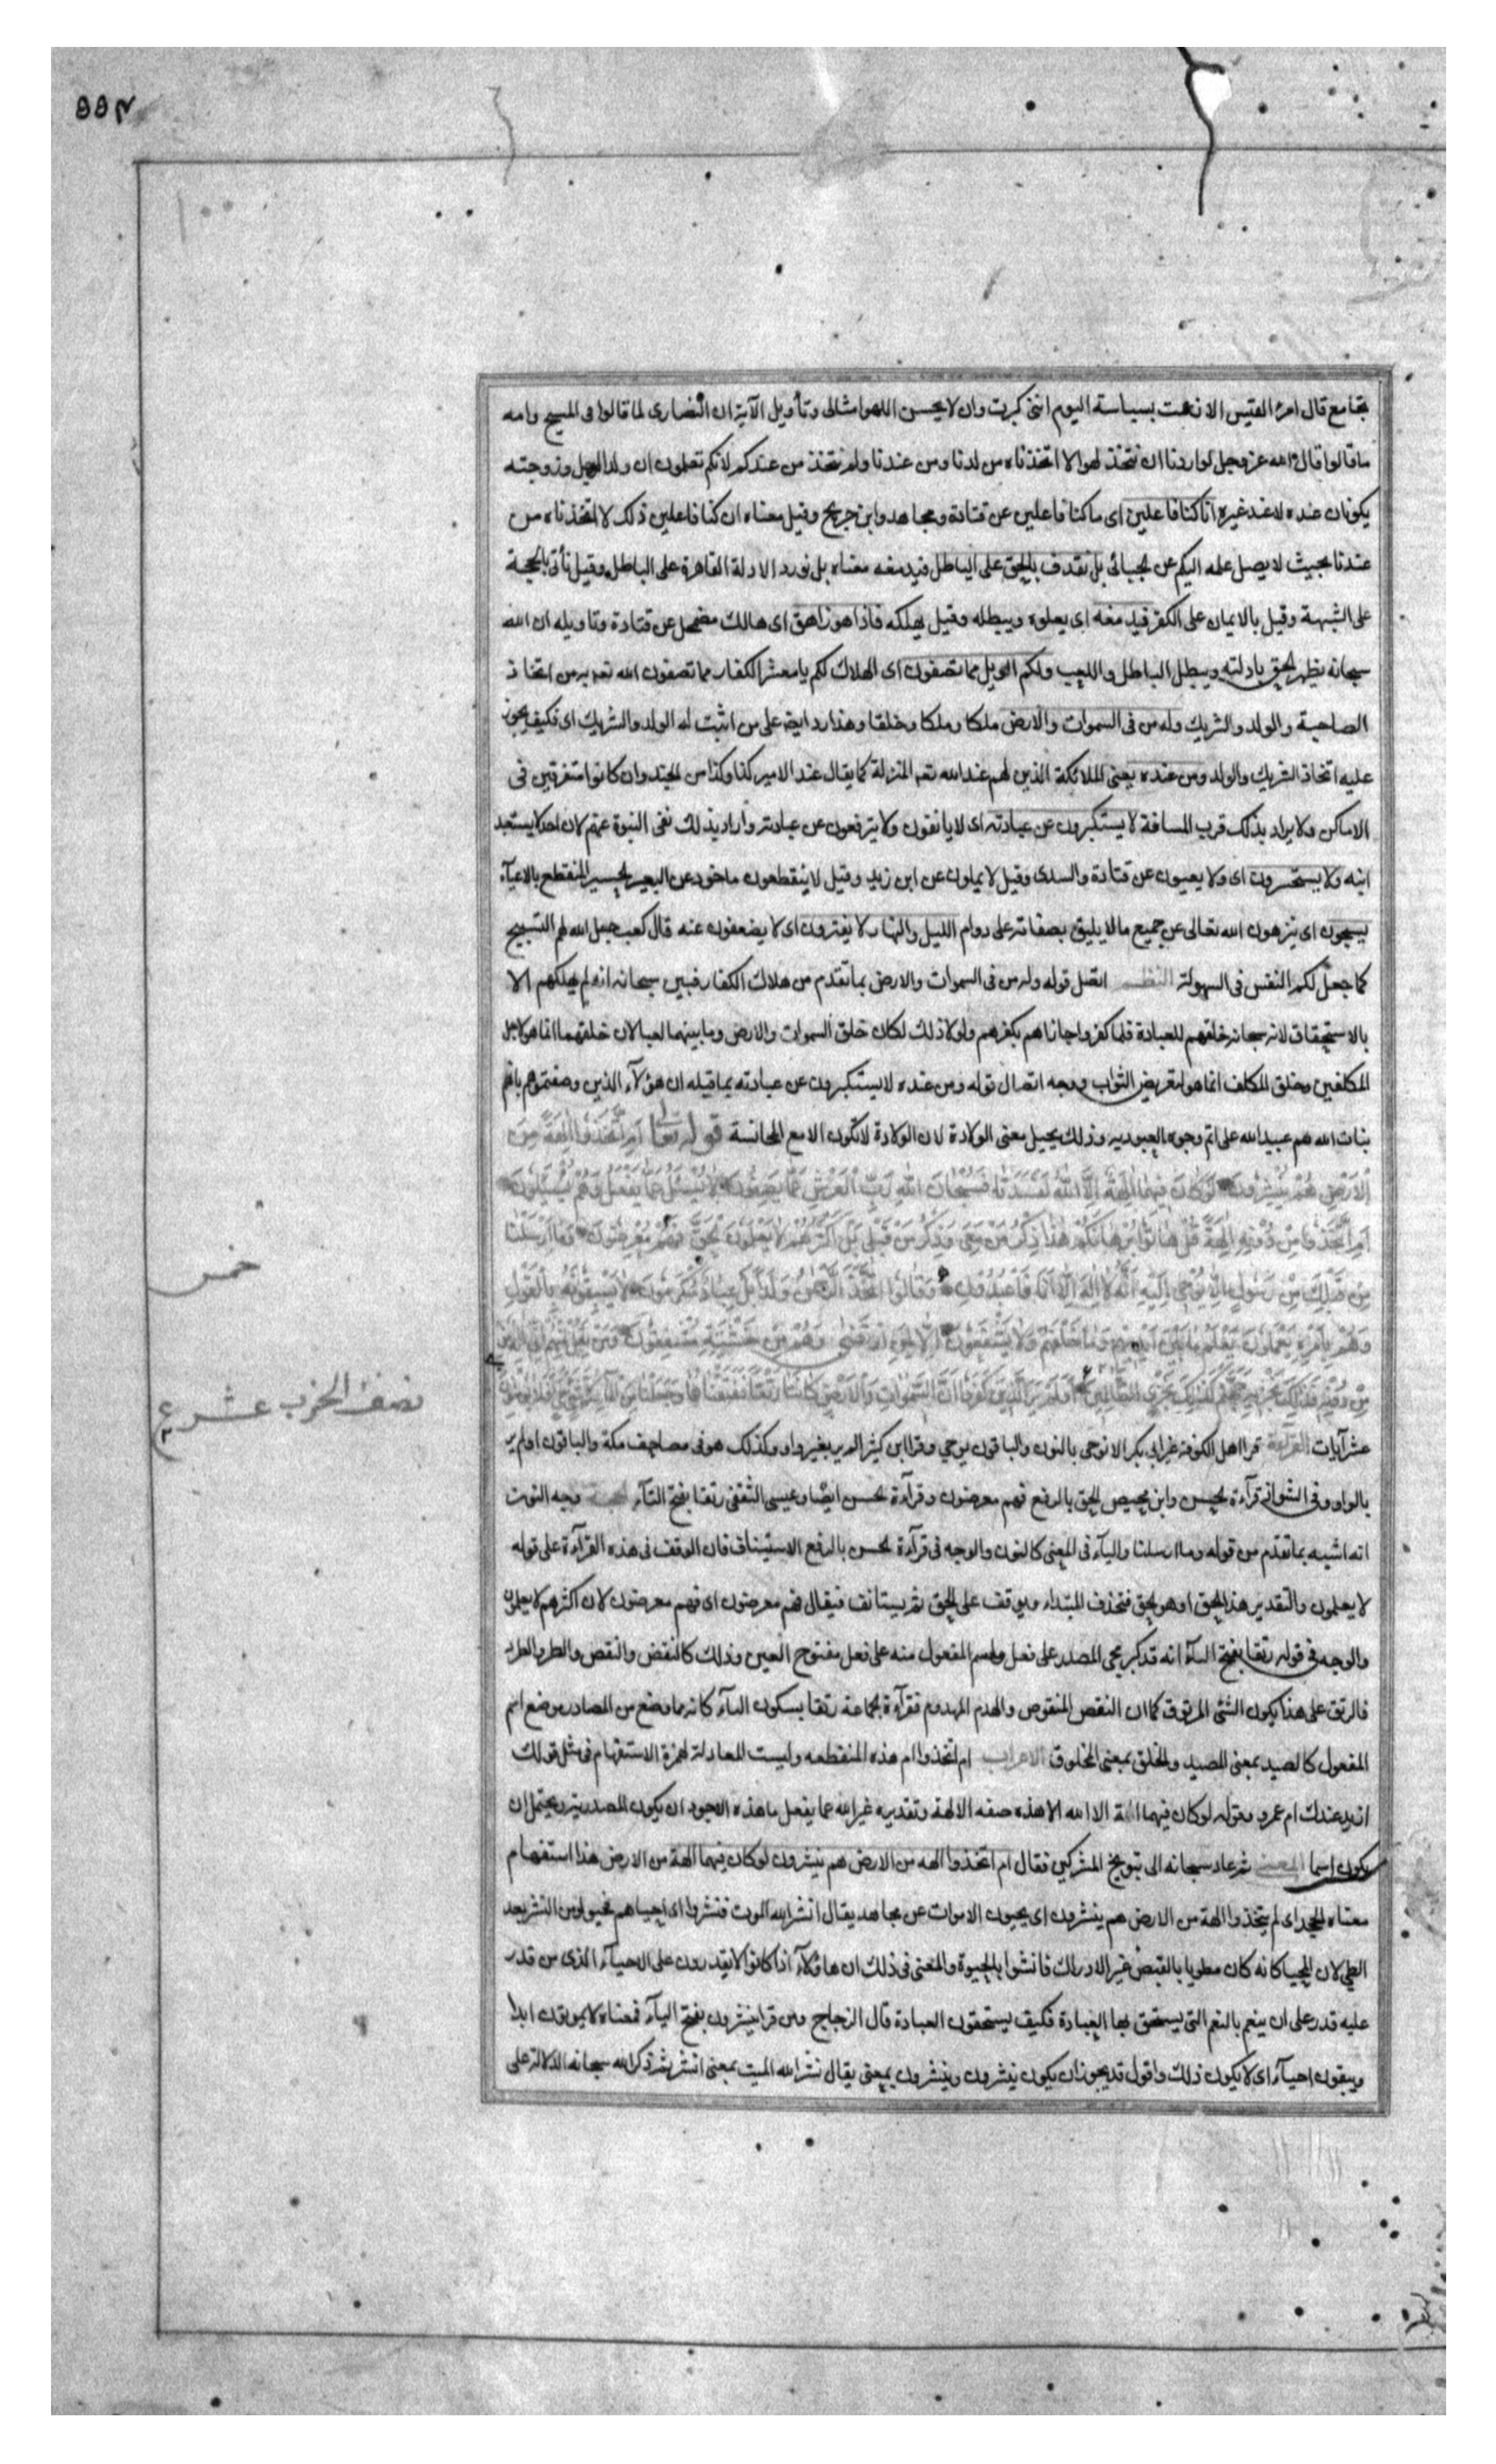 ٩٩٢
يجامع قال امرؤ القيس الا زعمت بسباسة اليوم انني كبرت وان لا يحسن اللهو امثالى وتأويل الآية ان النصارى لما قالوا فى المسيح وامه
ما قالوا قال الله عز وجل لو اردنا ان نتخذ لهوا لاتخذناه من لدنا ومن عندنا ولم نتخذ من عندكم لانكم تعلمون ان ولد الرجل وزوجته
يكونان عنده لا عند غيره ان كنا فاعلين اى ما كنا فاعلين عن قتادة ومجاهد وابن جريج وقيل معناه ان كنا فاعلين ذلك لاتخذناه من
عندنا بحيث لا يصل علمه اليكم عن الجبائى بل نقذف بالحق على الباطل فيدمغه معناه بل نورد الادلة القاهرة على الباطل وقيل نأتى بالحجة
على الشبهة وقيل بالايمان على الكفر فيدمغه اى يعلوه ويبطله وقيل يهلكه فاذا هو زاهق اى هالك مضمحل عن قتادة وتاويله ان الله
سبحانه يظهر الحق بادلته ويبطل الباطل واللعب ولكم الويل مما تصفون اى الهلاك لكم يا معشر الكفار مما تصفون الله تعم به من اتخاذ
الصاحبة والولد والشريك وله من فى السموات والارض ملكا وملكا وخلقا وهذا رد ايضا على من اثبت له الولد والشريك اى فكيف يجوز
عليه اتخاذ الشريك والولد ومن عنده يعنى الملائكة الذين لهم عند الله تعم المنزلة كما يقال عند الامير كذا وكذا من الجند وان كانوا متفرقين فى
الاماكن ولا يراد بذلك قرب المسافة لا يستكبرون عن عبادته اى لا يانفون ولا يترفعون عن عبادته واراد بذلك نفى النبوة عنهم لان احدا لا يستعبد
ابنه ولا يستحسرون اى ولا يعيون عن قتادة والسدى وقيل لا يملون عن ابن زيد وقيل لا ينقطعون ماخوذ عن البعير الحسير المنقطع بالاعيآء
يسبحون اى ينزهون الله تعالى عن جميع ما لا يليق بصفاته على دوام الليل والنهار لا يفترون اى لا يضعفون عنه قال كعب جعل الله لهم التسبيح
كما جعل لكم النفس فى السهولة النظم اتصل قوله وله من فى السموات والارض بما تقدم من هلاك الكفار فبين سبحانه انه لم يهلكهم الا
بالاستحقاق لانه سبحانه خلقهم للعبادة فلما كفروا جازاهم بكفرهم ولولا ذلك لكان خلق السموات والارض وما بينهما لعبا لان خلقهما انما هو لاجل
المكلفين وخلق المكلف انما هو لتعريض الثواب ووجه اتصال قوله ومن عنده لا يستكبرون عن عبادته بما قبله ان هؤلآء الذين وصفتموهم بانهم
بنات الله هم عبيد الله على اتم وجوه العبوديه وذلك يحيل معنى الولادة لان الولادة لا تكون الا مع المجانسة قوله تعا اَمِ اتَّخَذُوا اٰلِهَةً مِنَ
الْاَرْضِ هُمْ يُنْشِرُونَ لَوْ كَانَ فِيهِمَا اٰلِهَةٌ اِلَّا اللّٰهُ لَفَسَدَتَا فَسُبْحَانَ اللّٰهِ رَبِّ الْعَرْشِ عَمَّا يَصِفُونَ لَا يُسْئَلُ عَمَّا يَفْعَلُ وَهُمْ يُسْئَلُونَ
اَمِ اتَّخَذُوا مِنْ دُونِهِ اٰلِهَةً قُلْ هَاتُوا بُرْهَانَكُمْ هٰذَا ذِكْرُ مَنْ مَعِيَ وَذِكْرُ مَنْ قَبْلِي بَلْ اَكْثَرُهُمْ لَا يَعْلَمُونَ الْحَقَّ فَهُمْ مُعْرِضُونَ وَمَا اَرْسَلْنَا
مِنْ قَبْلِكَ مِنْ رَسُولٍ اِلَّا يُوحٰى اِلَيْهِ اَنَّهُ لَا اِلٰهَ اِلَّا اَنَا فَاعْبُدُونِ وَقَالُوا اتَّخَذَ الرَّحْمٰنُ وَلَدًا بَلْ عِبَادٌ مُكْرَمُونَ لَا يَسْبِقُونَهُ بِالْقَوْلِ
وَهُمْ بِاَمْرِهِ يَعْمَلُونَ يَعْلَمُ مَا بَيْنَ اَيْدِيهِمْ وَمَا خَلْفَهُمْ وَلَا يَشْفَعُونَ اِلَّا لِمَنِ ارْتَضٰى وَهُمْ مِنْ خَشْيَتِهِ مُشْفِقُونَ وَمَنْ يَقُلْ مِنْهُمْ اِنِّي اِلٰهٌ
مِنْ دُونِهِ فَذٰلِكَ نَجْزِيهِ جَهَنَّمَ كَذٰلِكَ نَجْزِي الظَّالِمِينَ اَوَلَمْ يَرَ الَّذِينَ كَفَرُوا اَنَّ السَّمٰوَاتِ وَالْاَرْضَ كَانَتَا رَتْقًا فَفَتَقْنَاهُمَا وَجَعَلْنَا مِنَ الْمَآءِ كُلَّ شَيْءٍ حَيٍّ اَفَلَا يُؤْمِنُونَ
عشر آيات القرآءة قرا اهل الكوفة غير ابي بكر الا نوحى بالنون والباقون يوحي وقرا ابن كثير الم ير بغير واو وكذلك هو فى مصاحف مكة والباقون اولم ير
بالواو وفى الشواذ قرآءة الحسن وابن محيصن الحق بالرفع فهم معرضون وقرآءة الحسن ايضا وعيسى الثقفى رتقا بفتح التآء الحجة وجه النون
انه اشبه بما تقدم من قوله وما ارسلنا واليآء فى المعنى كالنون والوجه فى قرآءة الحسن بالرفع الاستيناف فان الوقف فى هذه القرآءة على قوله
لا يعلمون والتقدير هذا الحق او هو الحق فتحذف المبتداء ويوقف على الحق ثم يستانف فيقال فهم معرضون اى فهم معرضون لان اكثرهم لا يعلمون
والوجه فى قوله رتقا بفتح التآء انه قد كبر مجى المصدر على فعل واسم المفعول منه على فعل مفتوح العين وذلك كالنفض والنقص والطرد والطرد
فالرتق على هذا يكون الشئ المرتوق كما ان النقص المنقوص والهدم المهدوم فقرآءة الجماعة رتقا بسكون التآء كانه مما وضع من المصادر موضع اسم
المفعول كالصيد بمعنى المصيد والخلق بمعنى المخلوق الاعراب ام اتخذوا ام هذه المنقطعه وليست المعادلة لهمزة الاستفهام فى مثل قولك
ازيد عندك ام عمرو وقوله لو كان فيهما الهة الا الله الا هذه صفه الالهة وتقديره غير الله عما يفعل ما هذه يجوز ان يكون المصدرية ويحتمل ان
يكون اسما المعنى ثم عاد سبحانه الى توبيخ المشركين فقال ام اتخذوا الهه من الارض هم ينشرون لو كان فيهما الهة من الارض هذا استفهام
معناه الجحد اى لم يتخذوا الهة من الارض هم ينشرون اى يحيون الاموات عن مجاهد يقال انشر الله الموت فنشروا اى احياهم فحيوا وهو من النشر بعد
الطى لان المحيا كانه كان مطويا بالقبض عن الادراك فانشوا بالحيوة والمعنى فى ذلك ان هاؤلآء اذا كانوا لا يقدرون على الاحيآء الذى من قدر
عليه قدر على ان ينعم بالنعم التى يستحق بها العبادة فكيف يستحقون العبادة قال الزجاج ومن قرا ينشرون بفتح اليآء فمعناه لا يموتون ابدا
ويبقون احيآء اى لا يكون ذلك واقول قد يجوز ان يكون ينشرون وينشرون بمعنى يقال نشر الله الميت بمعنى انشر ثم ذكر الله سبحانه الدلالة على
خمس
نصف الحزب عشر ع